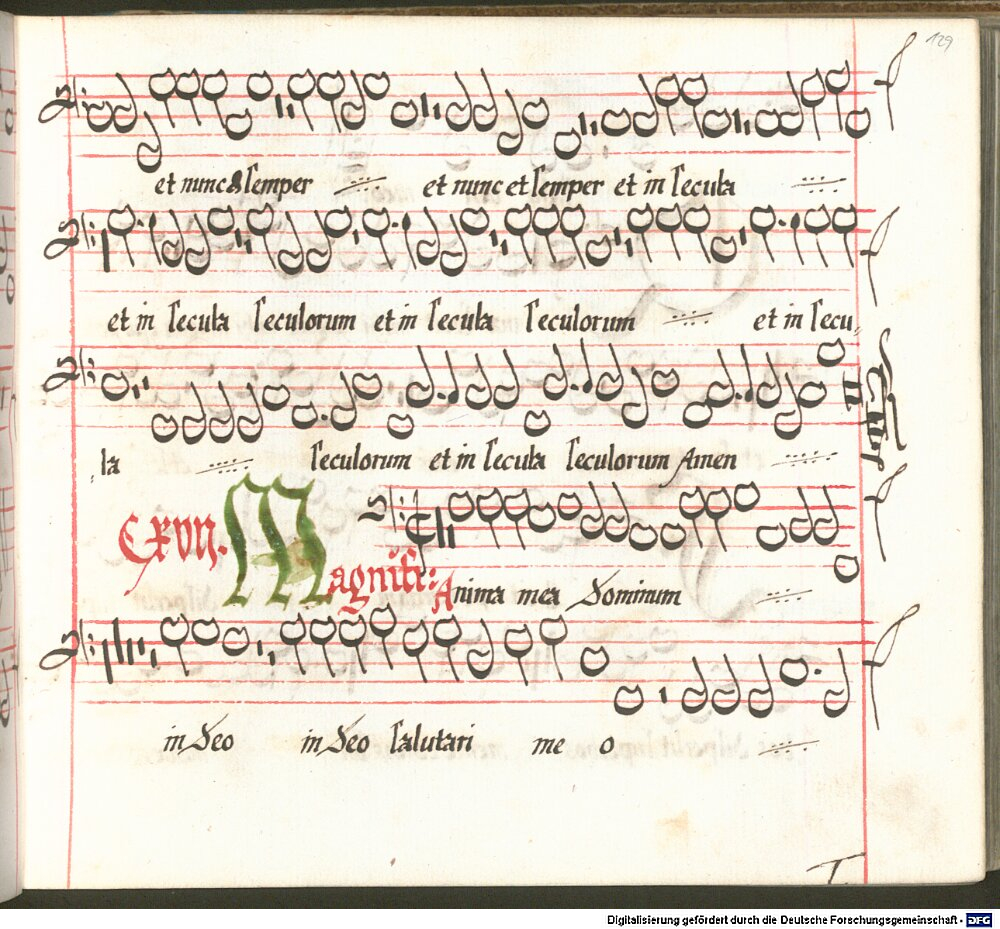 129
et nunc & semper et nunc et semper et in secula
et in secula seculorum et in secula seculorum et in secu,
,la seculorum et in secula seculorum Amen
CXVII. Magnifi: Anima mea Dominum
in Deo in Deo salutari me o
Digitalisierung gefördert durch die Deutsche Forschungsgemeinschaft - DFG